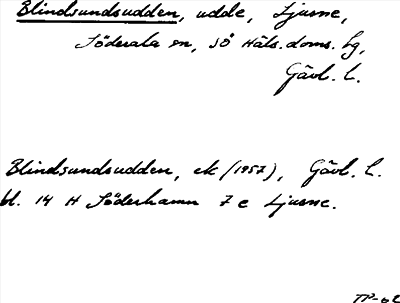 Blindsundsudden, udde, Ljusne,
Söderala sn, SÖ Häls. doms. hg,
Gävl. l.
Blindsundsudden, ek (1957), Gävl. l.
bl. 14 H Söderhamn 7 e Ljusne.